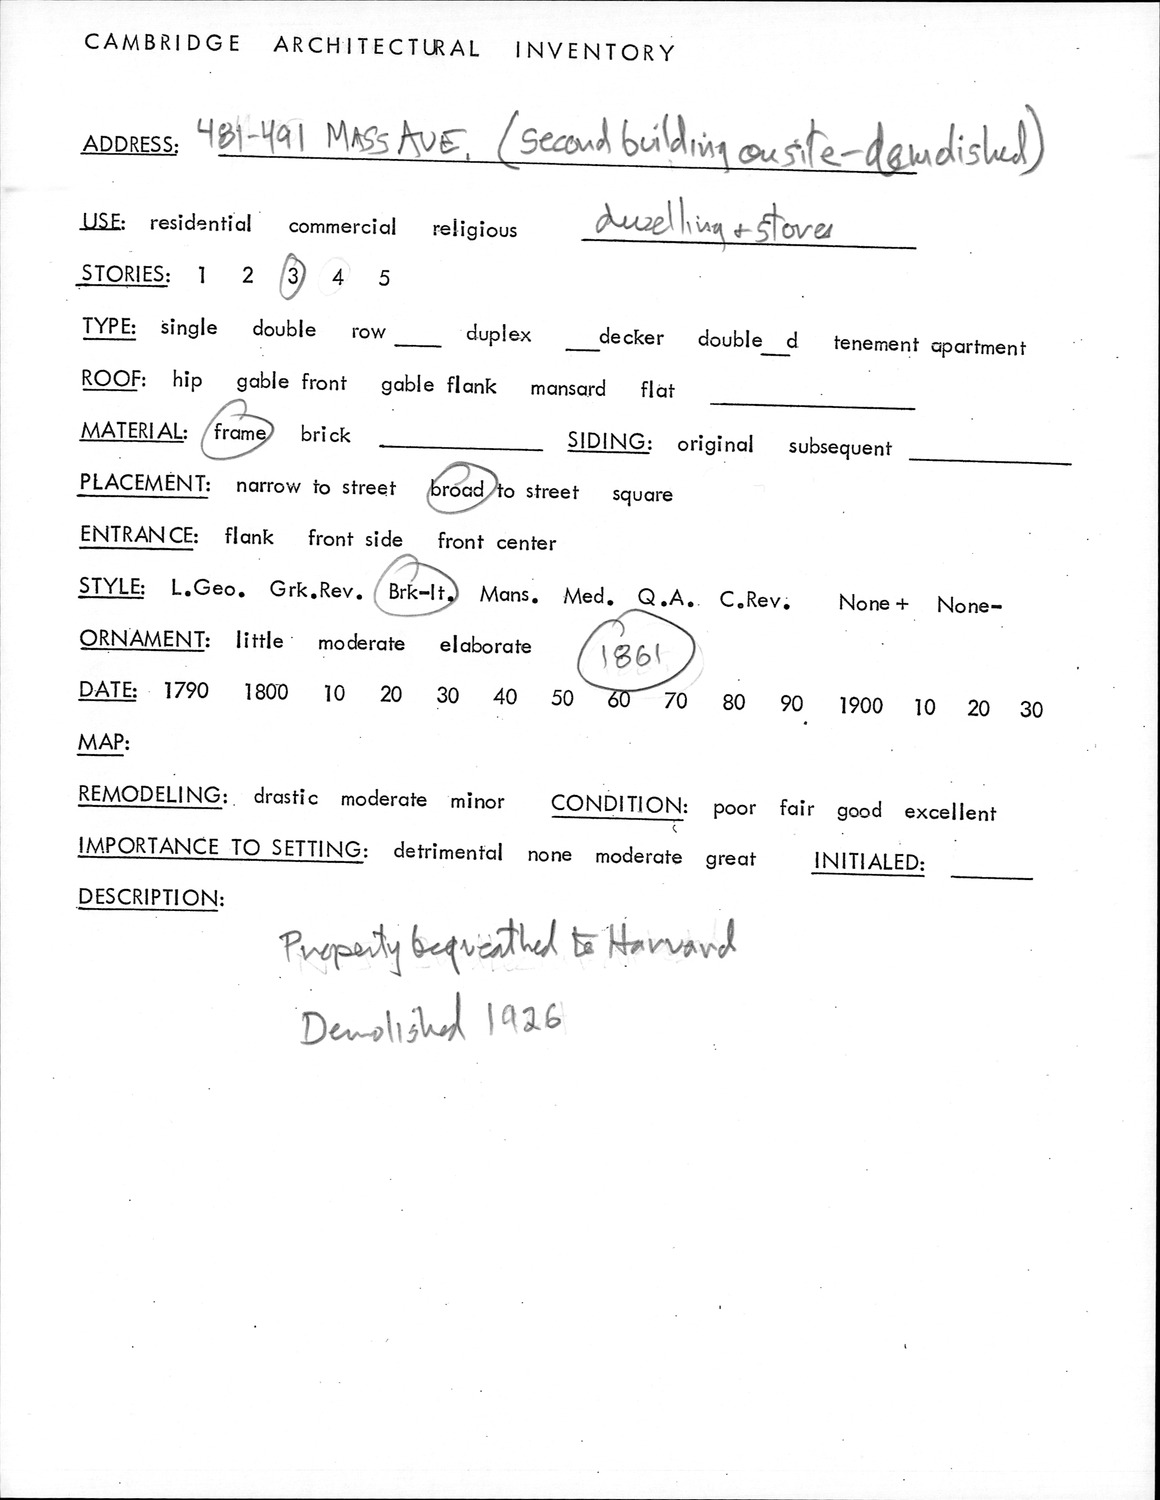 CAMBRIDGE ARCHITECTURAL INVENTORY
ADDRESS: 481-491 MASS AVE. (second building on site-demolished)
USE: residential commercial religious dwelling + stores
STORIES: 1 2 3 4 5
TYPE: single double row ____ duplex ___decker double__d tenement apartment
ROOF: hip gable front gable flank mansard flat ____
MATERIAL: frame brick ____ SIDING: original subsequent ____
PLACEMENT: narrow to street broad to street square
ENTRANCE: flank front side front center
STYLE: L.Geo. Grk.Rev. Brk-It. Mans. Med. Q.A. C.Rev. None+ None-
ORNAMENT: little moderate elaborate 1861
DATE: 1790 1800 10 20 30 40 50 60 70 80 90 1900 10 20 30
MAP:
REMODELING: drastic moderate minor CONDITION: poor fair good excellent
IMPORTANCE TO SETTING: detrimental none moderate great INITIALED: ____
DESCRIPTION:
Property bequeathed to Harvard
Demolished 1926